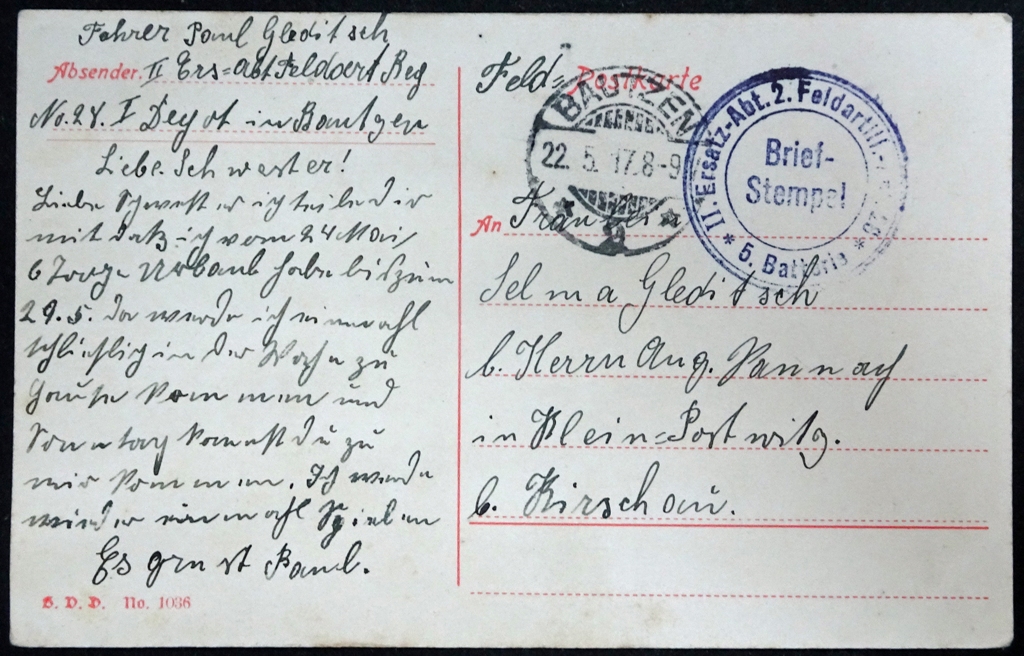 Fahrer Paul Gleditsch
Absender. II Ers=abt Feldart Reg
No. 28. I Depot in Bautzen
Liebe Schwester!
Liebe Schwester ich teile dir
mit daß ich vom 24 Mai
6 Tage Urlaub habe bis zum
29.5. da werde ich einmahl
schließlich in der Woche zu
Hause kommen und
Sonntag kommst Du zu
mir kommen. Ich werde
wieder einmahl
Es grust Paul.
B. D. D. No. 1036
Feld=Postkarte
BAUTZEN
22. 5. 17. 8-9
II. Ersatz-Abt. 2. Feldartill.-
Brief-
Stempel
* 5. Batterie *
An Fräulein
Selma Gleditsch
b. Herrn Aug. Pannach
in Klein=Postwitz.
b. Kirschau.